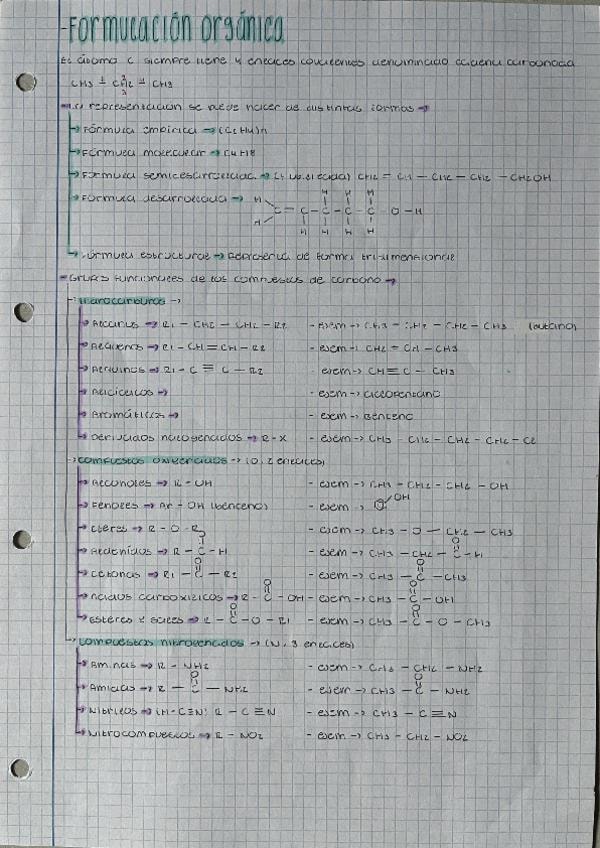 Formulación orgánica
El átomo C siempre tiene 4 enlaces covalentes denominado cadena carbonada
CH3 - CH2 - CH3
La representación se puede hacer de distintas formas →
→ Fórmula empírica → (C2H4)n
→ Fórmula molecular → C4H8
→ Fórmula semidesarrollada → CH2 = CH - CH2 - CH2 - CH2OH
→ Fórmula desarrollada →
H H H H
H C = C - C - C - C - O - H
H H H H
→ Fórmula estructural → Representa de forma tridimensional
- Grupos funcionales de los compuestos de carbono →
Hidrocarburos →
→ Alcanos → R1 - CH2 - CH2 - R2 - ejem → CH3 - CH2 - CH2 - CH3 (butano)
→ Alquenos → R1 - CH = CH - R2 - ejem → CH2 = CH - CH3
→ Alquinos → R1 - C ≡ C - R2 - ejem → CH ≡ C - CH3
→ Alicíclicos → - ejem → ciclopentano
→ Aromáticos → - ejem → Benceno
→ Derivados halogenados → R-X - ejem → CH3 - CH2 - CH2 - CH2 - Cl
→ Compuestos oxigenados → (O, 2 enlaces)
→ Alcoholes → R - OH - ejem → CH3 - CH2 - CH2 - OH
→ Fenoles → Ar - OH (benceno) - ejem → OH
→ Éteres → R - O - R - ejem → CH3 - O - CH2 - CH3
→ Aldehídos → R - C(=O) - H - ejem → CH3 - CH2 - C(=O) - H
→ Cetonas → R1 - C(=O) - R2 - ejem → CH3 - C(=O) - CH3
→ Ácidos carboxílicos → R - C(=O) - OH - ejem → CH3 - C(=O) - OH
→ Ésteres y sales → R - C(=O) - O - R1 - ejem → CH3 - C(=O) - O - CH3
→ Compuestos nitrogenados → (N, 3 enlaces)
→ Aminas → R - NH2 - ejem → CH3 - CH2 - NH2
→ Amidas → R - C(=O) - NH2 - ejem → CH3 - C(=O) - NH2
→ Nitrilos → (H-C≡N) R - C ≡ N - ejem → CH3 - C ≡ N
→ Nitrocompuestos → R - NO2 - ejem → CH3 - CH2 - NO2